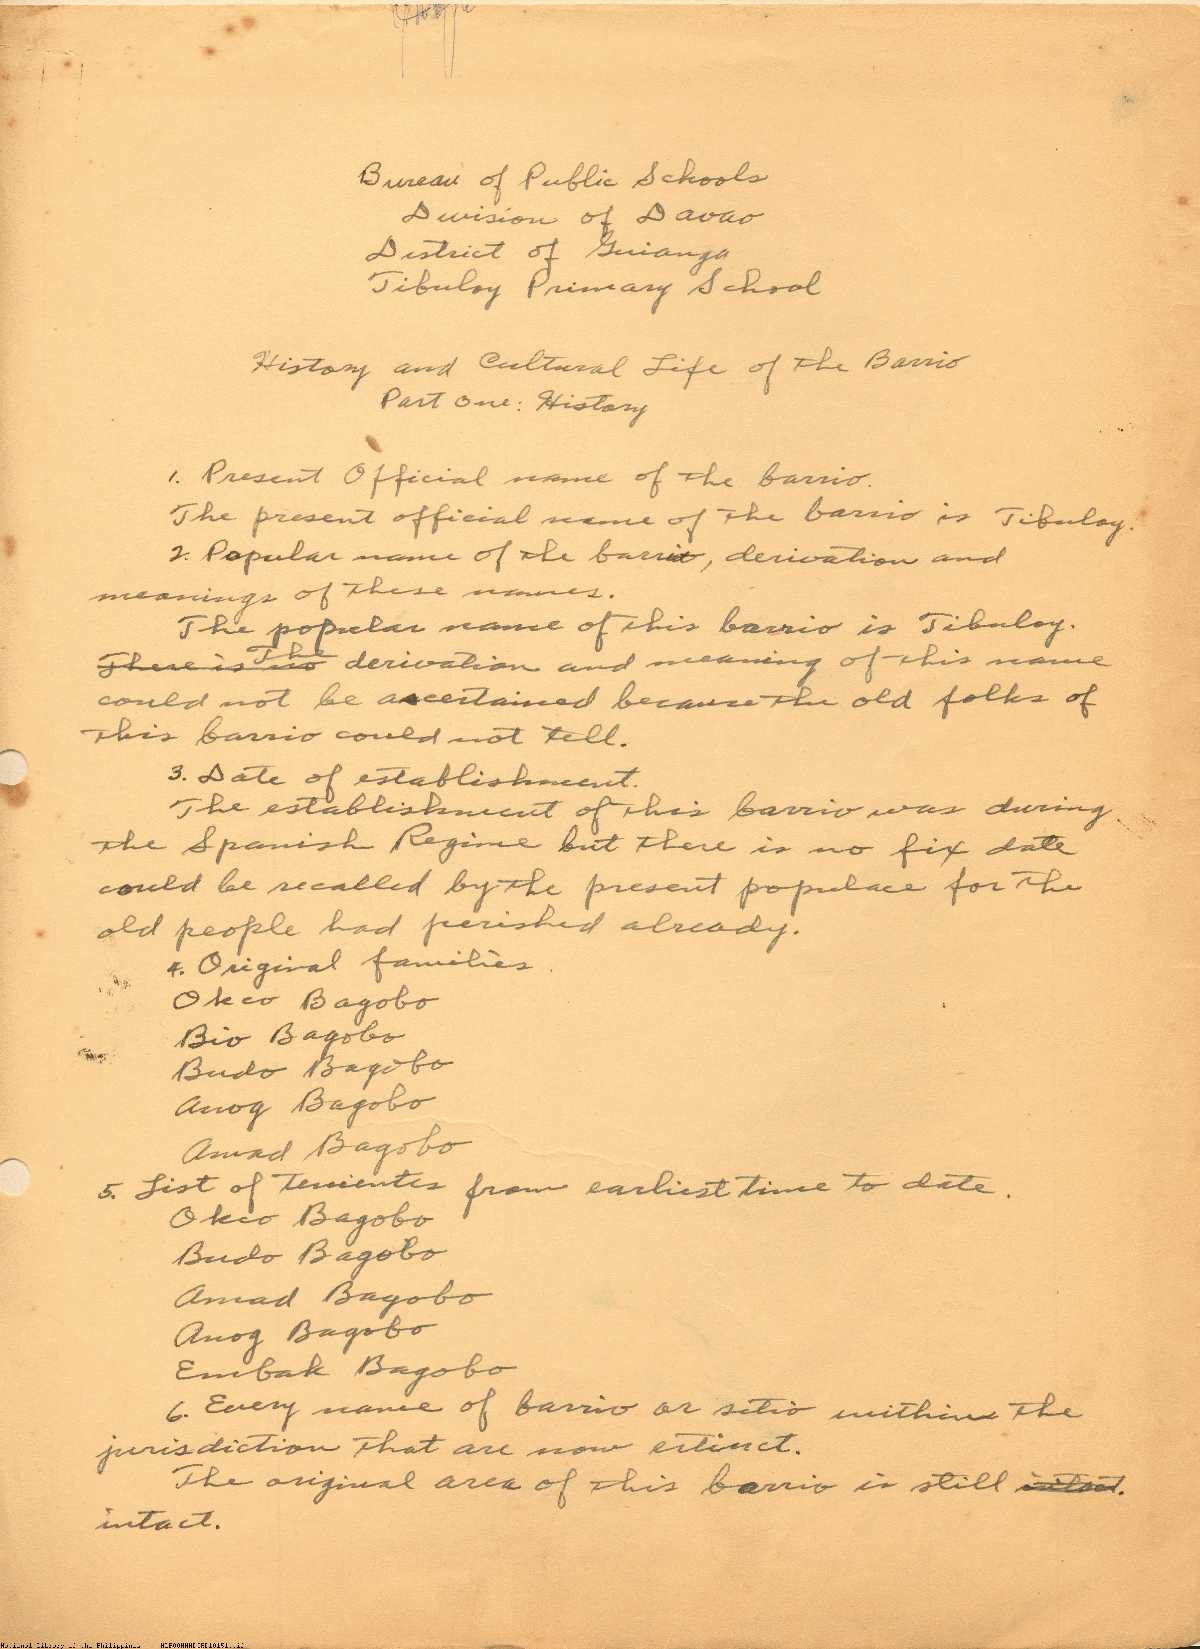 Bureau of Public Schools
Division of Davao
District of Guianga
Tibuloy Primary School
History and Cultural Life of the Barrio
Part One: History
1. Present Official name of the barrio.
The present official name of the barrio is Tibuloy.
2. Popular name of the barrio, derivation and
meanings of these names.
The popular name of this barrio is Tibuloy.
There is no The derivation and meaning of this name
could not be ascertained because the old folks of
this barrio could not tell.
3. Date of establishment.
The establishment of this barrio was during
the Spanish Regime but there is no fix date
could be recalled by the present populace for the
old people had perished already.
4. Original families.
Okco Bagobo
Bio Bagobo
Budo Bagobo
Anog Bagobo
Amad Bagobo
5. List of tenientes from earliest time to date.
Okco Bagobo
Budo Bagobo
Amad Bagobo
Anog Bagobo
Embak Bagobo
6. Every name of barrio or sitio within the
jurisdiction that are now extinct.
The original area of this barrio is still intact.
intact.
National Library of the Philippines